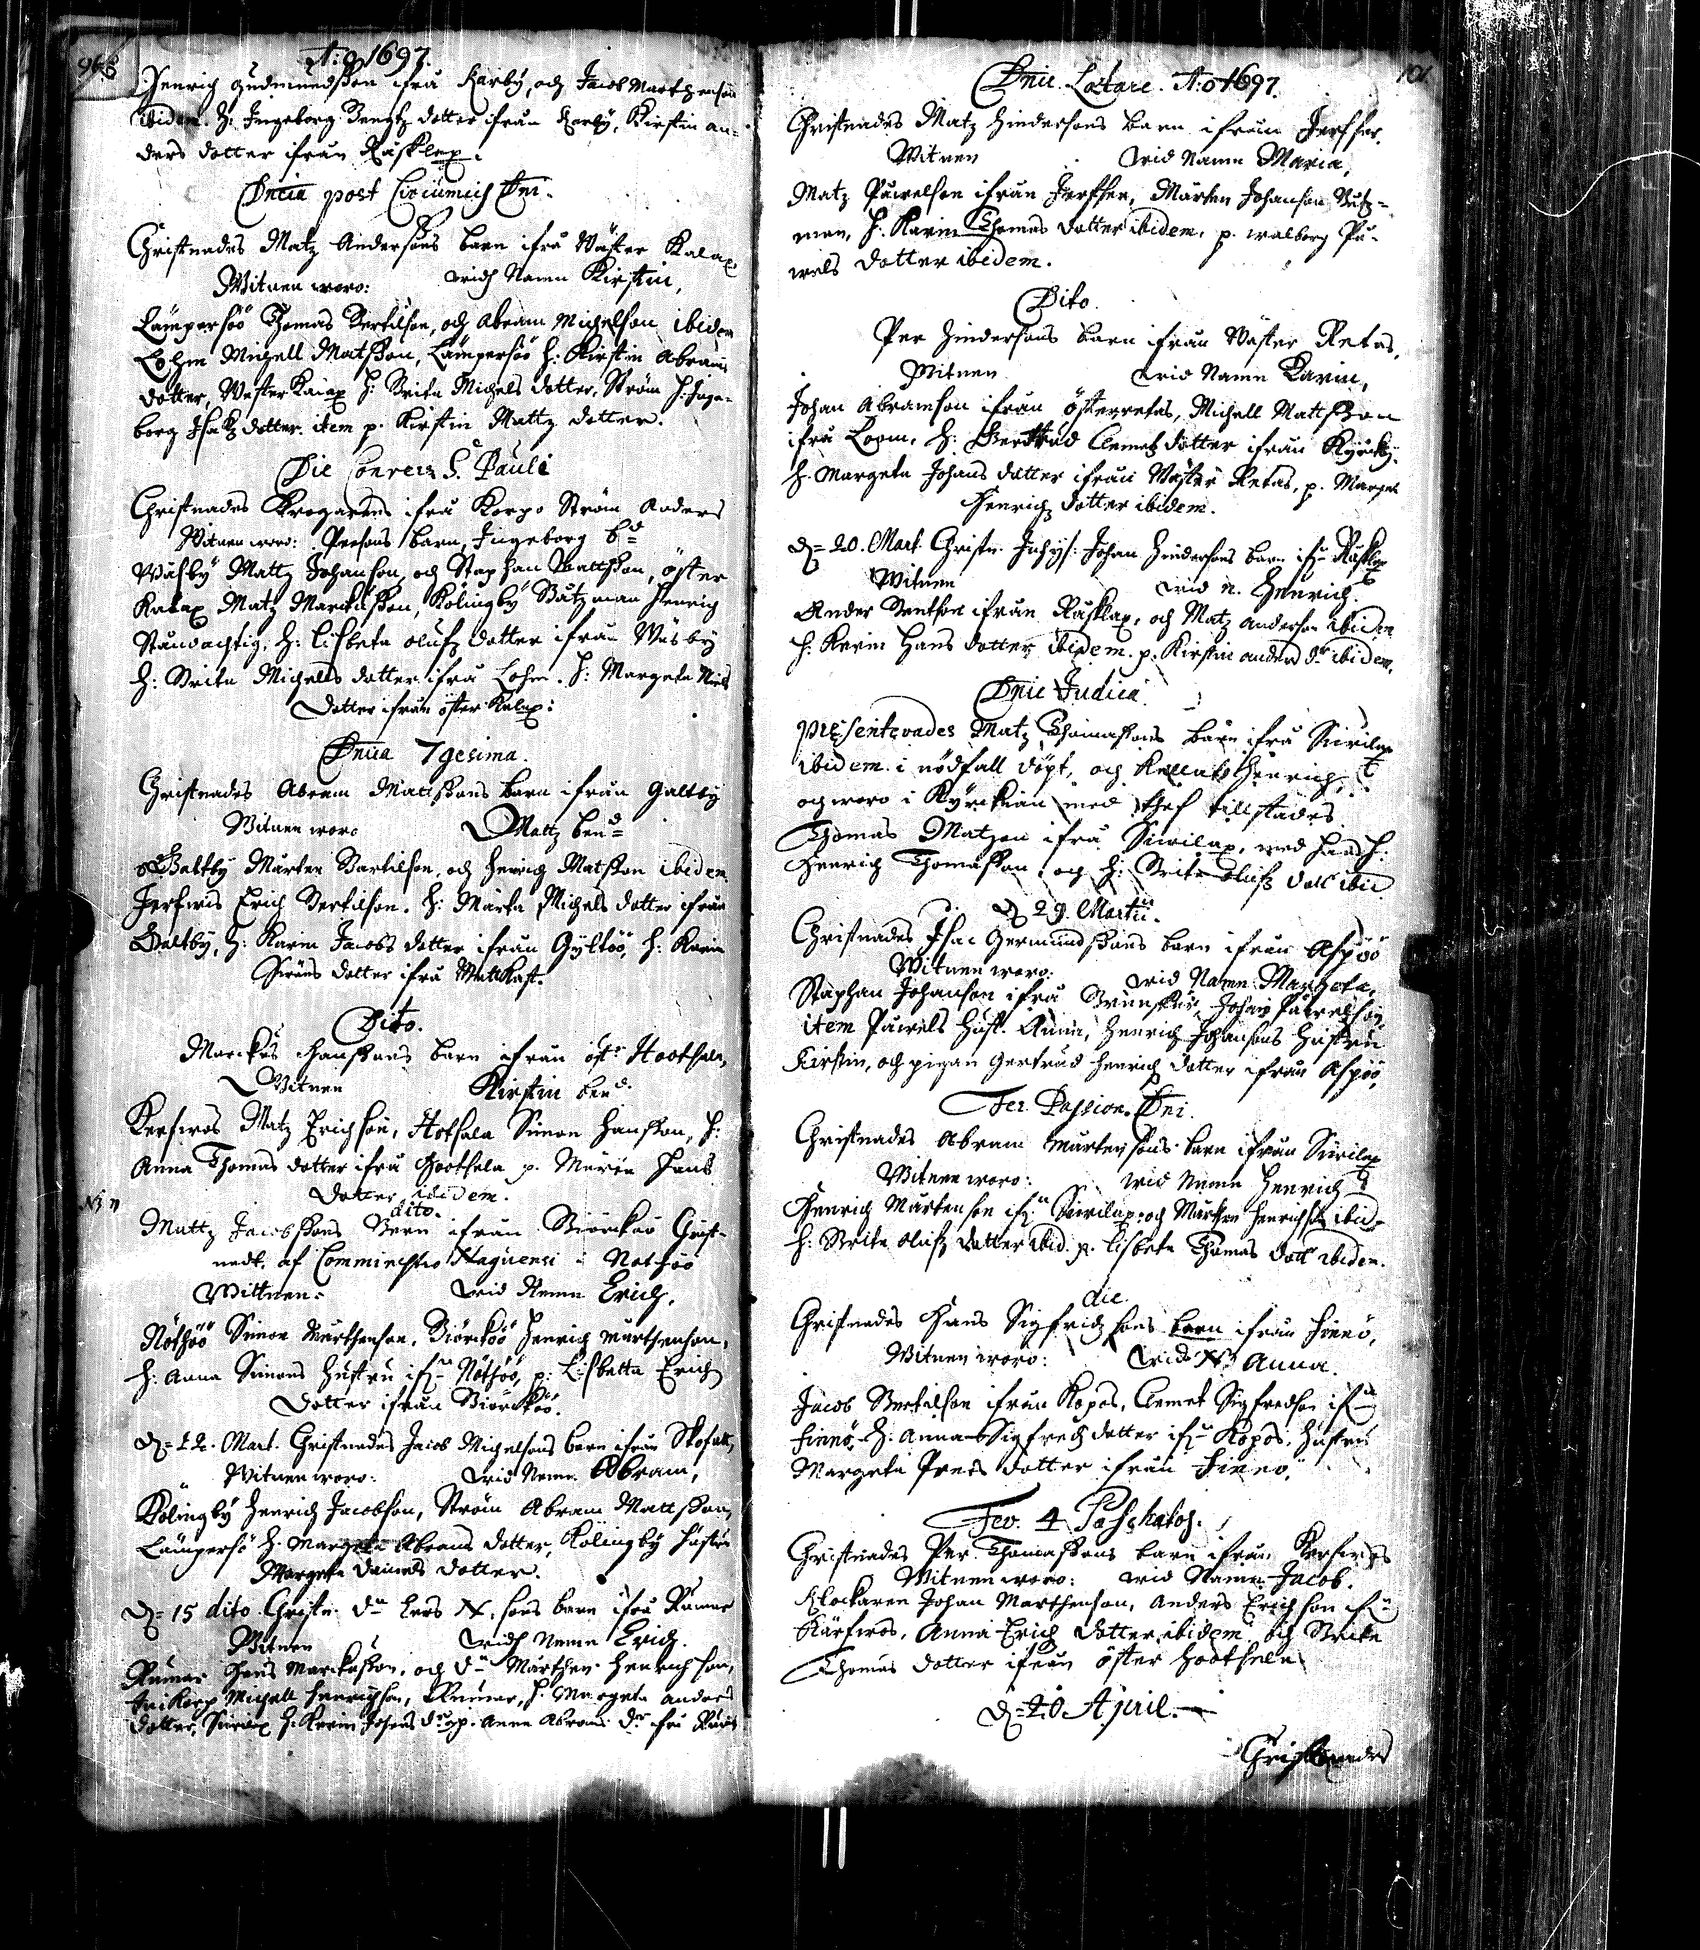 A:o 1697.
Henrich Gudmundsson ifrå Karby, och Jacob Marthenson
ibidem. H: Ingeborg Bengtz dotter ifrån Karby, Kirstin An-
ders dotter ifrån Räsklax.
Dnica post Circumcis Dni.
Christnades Matz Andersons barn ifrå Wäster Kalax,
Witnen woro: widh Namn Kirstin,
Lämpersöö Thomas Bertilson, och Abram Michelson ibidem
Lohm Michell Matsson, Lämpersöö H: Kirstin Abrams
dotter, Wäster Kalax H: Brita Michels dotter, Ström H: Inge-
borg Isaks dotter. item p. Kirstin Mattz dotter.
Die Convers S. Pauli
Christnades Krogarens ifrå Korpo Ström Anders
Witnen woro: Persons barn, Ingeborg bd
Wäsby Mattz Johanson, och Staphan Mattsson, öster
Kalax Matz Marckusson, Kölingby Båtzman Henrich
Ståndachtig. H: Lisbeta Olufz dotter ifrån Wäsby
H: Brita Michells dotter ifrå Lohm. H: Margeta Niels
dotter ifrån öster Kalax:
Dnica 7gesima.
Christnades Abram Matssons barn ifrån Galtby
Witnen woro Mattz bend
Galtby Mårten Bertilson, och Henrich Matsson ibidem
Jerfwis Erich Bertilson. H: Märta Michels dotter ifrån
Galtby, H: Karin Jacobs dotter ifrån Gyltöö, H: Karin
dotter ifrå Mattkast.
Dito.
Marckus Hanssons barn ifrån östr Hoothala,
Witnen Kirstin bend:
Kerfwes Matz Erichson, Hothala Simon Hansson, H:
Anna Thomas dotter ifrå Hoothala p. Maria Hans
dotter ibidem.
dito.
Mattz Jacobssons Barn ifrån Biörckö Christ-
nadt, af Comministro Naguensi i Nothöö
Wittnen: wid Namn Erich.
Nöthöö Simon Mårthenson, Biörköö Henrich Mårthenson,
H: Anna Simons hustru ifrn Nöthöö, p: Lisbetta Erich
dotter ifrån Biörcköö.
d= 12. Mart. Christnades Jacob Michelsons barn ifrån
Witnen woro: wid Namn Abram,
Kölingby Henrich Jacobson, Ström Abram Mattsson,
Lämpersö H: Margeta Abrams dotter, Kölingby hustru
Margeta Daniels dotter.
d= 15 dito Christn. Lars N. sons barn ifrå Rumar
Witnen widh Namn Erich.
Rumar Hans Marckusson, och Mårthen Henrichson,
Michell Henrichson, Rumar, H: Margeta Anders
dotter, H: Karin p. Anna Abrams dr ifrå
Dnic. Lætare. A:o 1697.
Christnades Matz Hindersons barn ifrån
Witnen wid Namn Maria,
Matz Påwelson ifrån Mårten Johanson Båtz-
man, H: Karin Thomas dotter ibidem, p. Walborg På-
wels dotter ibidem.
Dito.
Per Hindersons barn ifrån Wäster Retas,
Witnen wid Namn Karin,
Johan Abramson ifrån österretas, Michell Mattsson
ifrå Loom, H: Gertrud Clemets dotter ifrån Kyrkby.
H. Margeta Johans dotter ifrån Wäster Retas, p. Marget
Henrichz dotter ibidem.
d= 20. Mart. Christn. Johan Hindersons barn ifn Räsklax
Witnen wid n. Henrich.
Anders Bentson ifrån Räsklax, och Matz Anderson ibidem
H: Karin Hans dotter ibidem. p. Kirstin Anders dr ibidem.
Dnic Judica
Præsenterades Matz Thomassons barn ifrå
ibidem i nödfall döpt, och kallat Henrich,
och woro i Kyrckian med thef tillstädes
Thomas Matzon ifrå med H:
Henrich Thomasson, och H: Brita Olufz dott ibid
d 29. Martii.
Christnades Isac Germundssons barn ifrån Aspöö
Witnen woro: wid Namn Margeta,
Staphan Johanson ifrå Brunskär, Johan Påwelson
item Påwels hust. Anna, Henrich Johansons hustru
Kirstin, och pigan Gertrud Henrich dotter ifrån Aspöö,
Fer. Passion. Dni.
Christnades Abram Mårtenssons barn ifrån
Witnen woro: wid Namn Henrich
Henrich Mårtenson och Mårthen Henrichson ibid.
H: Brita Olufz dotter ibid. p. Lisbeta Thomas dott ibidem.
die.
Christnades Hans Sigfridsons barn ifrån Finnö,
Witnen woro: wid N. Anna.
Jacob Bertilson ifrån Kopos, Clemet Sigfredson ifrn
Finnö, H: Anna Sigfredz dotter ifrn Kopos, hustru
Margeta Pers dotter ifrån Finnö.
Fer. 4 Paschatos.
Christnades Per Thomassons barn ifrån Kerfwes
Witnen woro: wid Namn Jacob.
Klockaren Johan Marthenson, Anders Erichson ifrn
Kärfwes, Anna Erich dotter ibidem och Brita
Thomas dotter ifrån öster Hoothala
d= 20 April.
Christnades